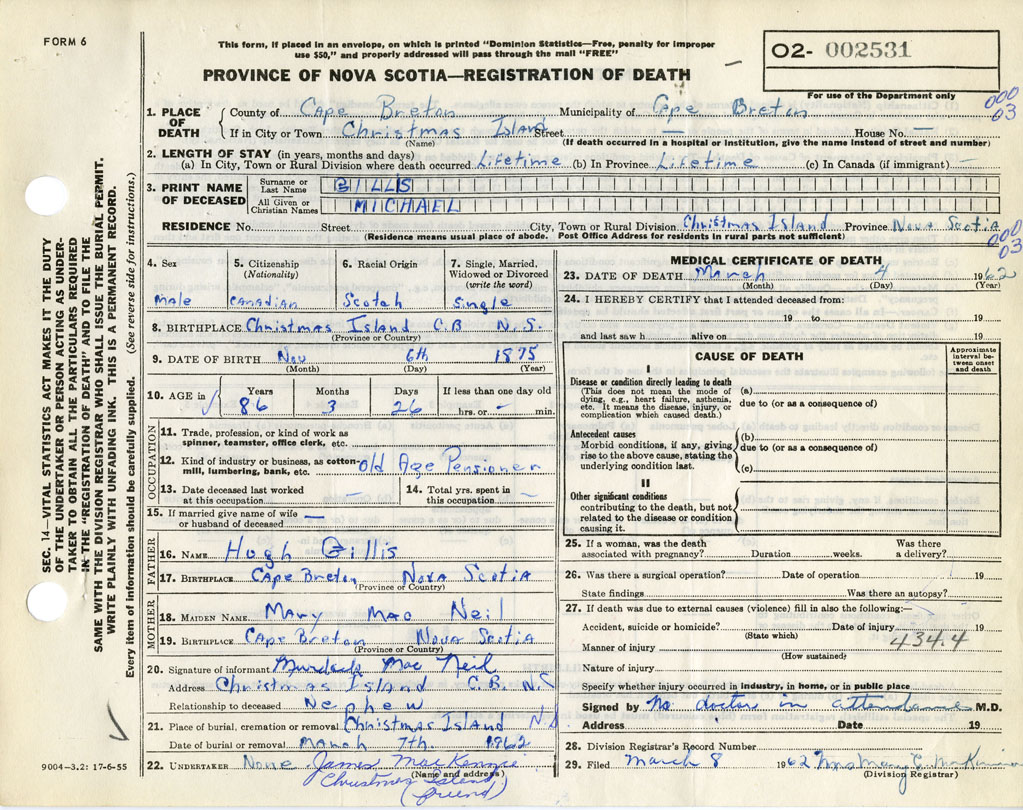 FORM 6
This form, if placed in an envelope, on which is printed "Dominion Statistics—Free, penalty for improper
use $50," and properly addressed will pass through the mail "FREE"
PROVINCE OF NOVA SCOTIA—REGISTRATION OF DEATH
O2- 002531
For use of the Department only
SEC. 14—VITAL STATISTICS ACT MAKES IT THE DUTY
OF THE UNDERTAKER OR PERSON ACTING AS UNDER-
TAKER TO OBTAIN ALL THE PARTICULARS REQUIRED
IN THE "REGISTRATION OF DEATH" AND TO FILE THE
SAME WITH THE DIVISION REGISTRAR WHO SHALL ISSUE THE BURIAL PERMIT.
WRITE PLAINLY WITH UNFADING INK. THIS IS A PERMANENT RECORD.
Every item of information should be carefully supplied. (See reverse side for instructions.)
1. PLACE OF DEATH County of Cape Breton Municipality of Cape Breton
000
03
If in City or Town Christmas Island Street — House No. —
(Name) (If death occurred in a hospital or institution, give the name instead of street and number)
2. LENGTH OF STAY (in years, months and days)
(a) In City, Town or Rural Division where death occurred Lifetime (b) In Province Lifetime (c) In Canada (if immigrant) —
3. PRINT NAME OF DECEASED Surname or Last Name GILLIS
All Given or Christian Names MICHAEL
RESIDENCE No. Street City, Town or Rural Division Christmas Island Province Nova Scotia
(Residence means usual place of abode. Post Office Address for residents in rural parts not sufficient)
000
03
4. Sex 5. Citizenship (Nationality) 6. Racial Origin 7. Single, Married, Widowed or Divorced (write the word)
Male Canadian Scotch Single
8. BIRTHPLACE Christmas Island C.B N.S.
(Province or Country)
9. DATE OF BIRTH Nov 6th 1875
(Month) (Day) (Year)
10. AGE in Years Months Days If less than one day old
86 3 26 hrs. or — min.
OCCUPATION
11. Trade, profession, or kind of work as
spinner, teamster, office clerk, etc.
12. Kind of industry or business, as cotton-
mill, lumbering, bank, etc. Old Age Pensioner
13. Date deceased last worked at this occupation — 14. Total yrs. spent in this occupation —
15. If married give name of wife
or husband of deceased —
FATHER
16. NAME Hugh Gillis
17. BIRTHPLACE Cape Breton Nova Scotia
(Province or Country)
MOTHER
18. MAIDEN NAME Mary Mac Neil
19. BIRTHPLACE Cape Breton Nova Scotia
(Province or Country)
20. Signature of informant Murdoch Mac Neil
Address Christmas Island C.B. N.S
Relationship to deceased Nephew
21. Place of burial, cremation or removal Christmas Island N.S
Date of burial or removal March 7th. 1962
22. UNDERTAKER None James MacKenzie
(Name and address)
Christmas Island
(friend)
9004-3.2: 17-6-55
MEDICAL CERTIFICATE OF DEATH
23. DATE OF DEATH March 4 1962
(Month) (Day) (Year)
24. I HEREBY CERTIFY that I attended deceased from:
19 to 19
and last saw h alive on 19
CAUSE OF DEATH
Approximate interval between onset and death
I
Disease or condition directly leading to death
(This does not mean the mode of
dying, e.g., heart failure, asthenia,
etc. It means the disease, injury, or
complication which caused death.)
(a)
due to (or as a consequence of)
Antecedent causes
Morbid conditions, if any, giving
rise to the above cause, stating the
underlying condition last.
(b)
due to (or as a consequence of)
(c)
II
Other significant conditions
contributing to the death, but not
related to the disease or condition
causing it.
25. If a woman, was the death Was there
associated with pregnancy? Duration weeks. a delivery?
26. Was there a surgical operation? Date of operation 19
State findings Was there an autopsy?
27. If death was due to external causes (violence) fill in also the following:—
Accident, suicide or homicide? Date of injury 19
(State which)
434.4
Manner of injury
(How sustained?)
Nature of injury
Specify whether injury occurred in industry, in home, or in public place
Signed by No doctor in attendance M.D.
Address Date 19
28. Division Registrar's Record Number
29. Filed March 8 1962 Mrs Mary C. MacKinnon
(Division Registrar)